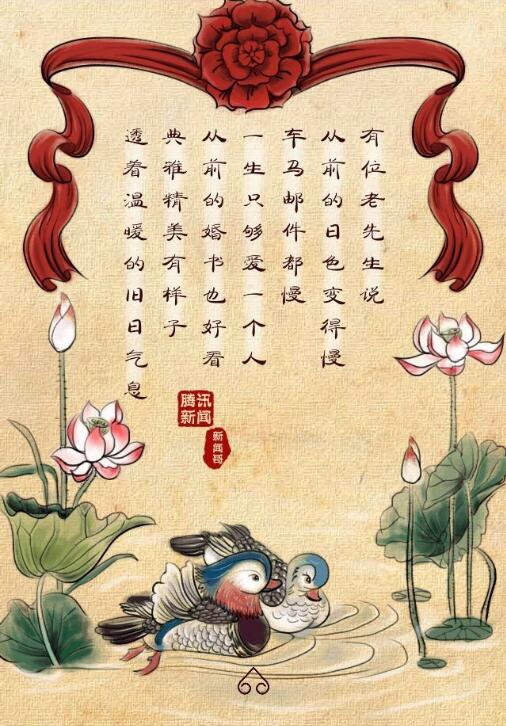 有位老先生说
从前的日色变得慢
车马邮件都慢
一生只够爱一个人
从前的婚书也好看
典雅精美有样子
透着温暖的旧日气息
腾讯
新闻
新闻哥